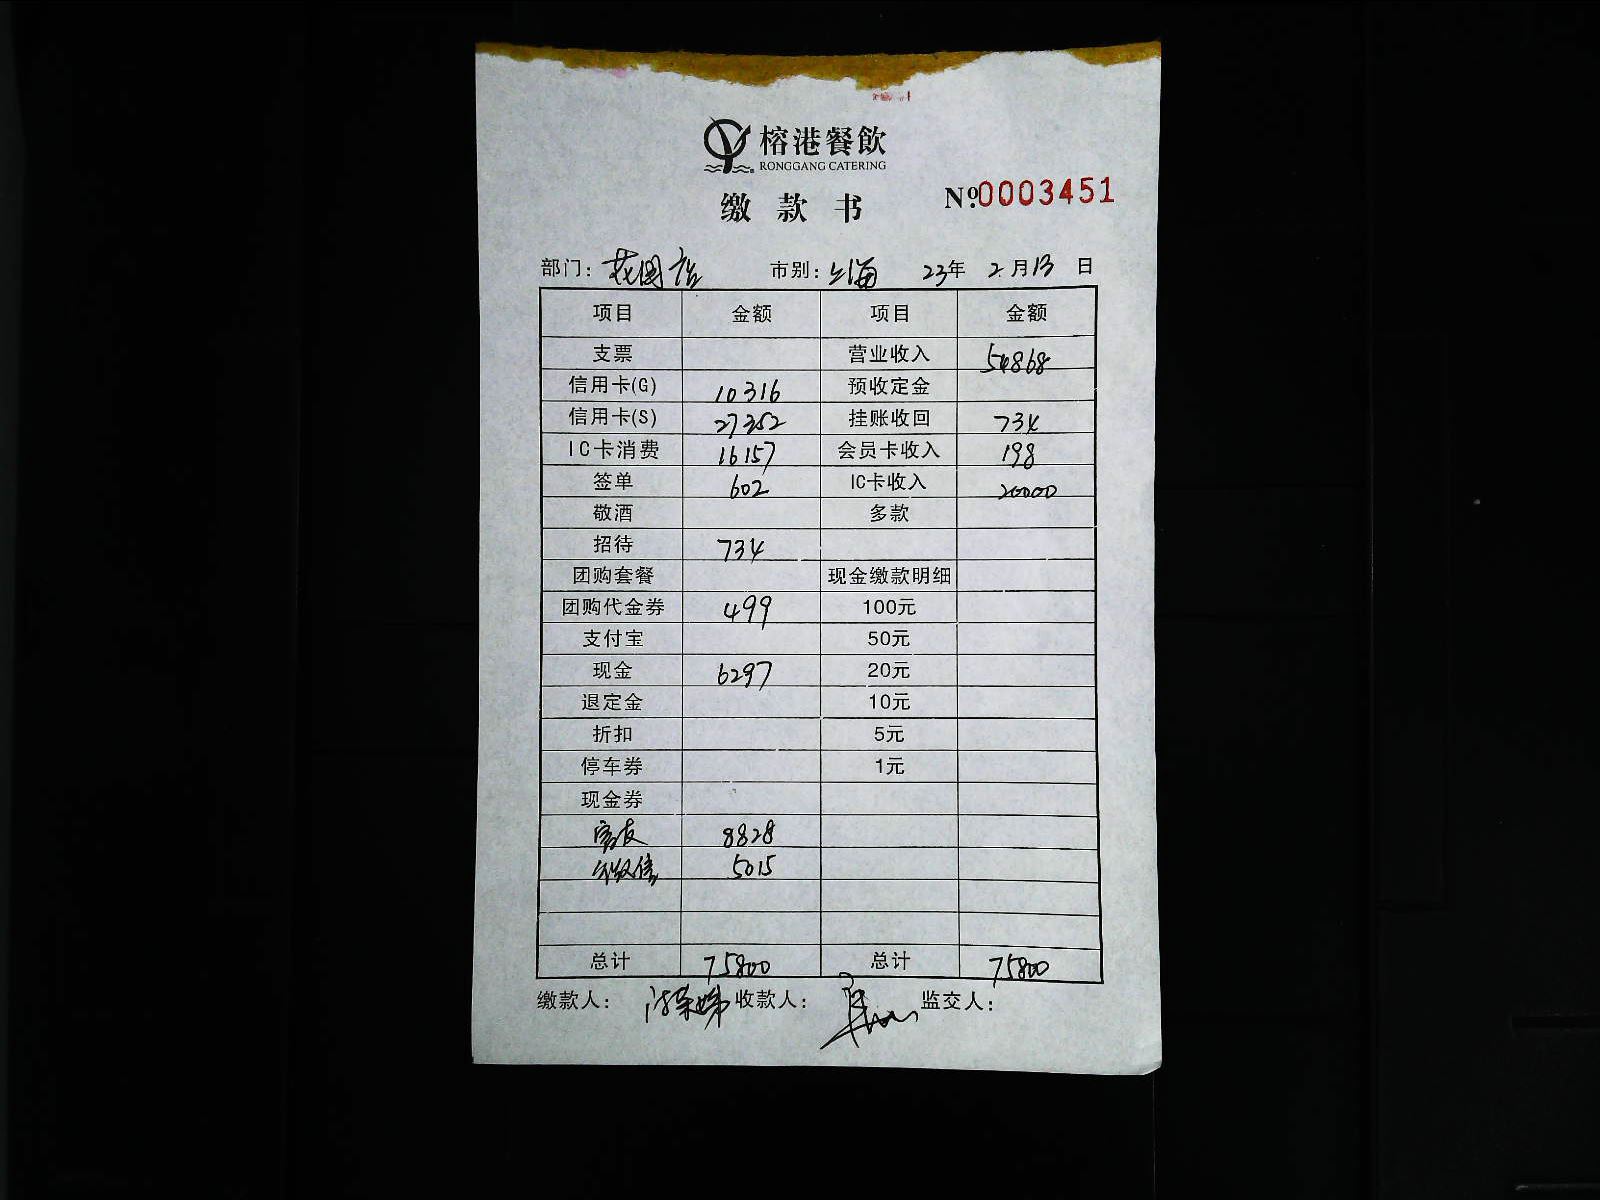 榕港餐飲
RONGGANG CATERING
缴款书
№0003451
部门: 花园 市别: 上海 23年 2月13日
项目 金额 项目 金额
支票 营业收入 54868
信用卡(G) 10316 预收定金
信用卡(S) 27352 挂账收回 734
IC卡消费 16157 会员卡收入 198
签单 602 IC卡收入 20000
敬酒 多款
招待 734
团购套餐 现金缴款明细
团购代金券 499 100元
支付宝 50元
现金 6297 20元
退定金 10元
折扣 5元
停车券 1元
现金券
8828
微信 5015
总计 75800 总计 75800
缴款人: 收款人: 监交人: